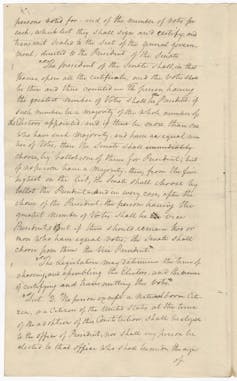 persons voted for, and of the number of votes for
each, which list they shall sign and certify, and
transmit sealed to the seat of the general govern-
ment, directed to the President of the Senate
"The President of the Senate shall, in that
House, open all the certificates, and the votes shall
be then and there counted the person having
the greatest number of Votes shall be President, if
such number be a majority of the whole number of
Electors appointed and if there be more than one
who have such Majority, and have an equal num-
ber of Votes, then the Senate shall immediately
choose by ballot one of them for President, but
if no person have a Majority, then from the five
highest on the list, the Senate shall choose by
ballot the President. And in every case, after the
choice of the President, the person having the
greatest Number of Votes shall be Vice
President: But if there should remain two or
more who have equal Votes, the Senate shall
choose from them the Vice President."
"The Legislature may determine the time of
choosing and assembling the Electors, and the manner
of certifying and transmitting the Votes"
"Sect. 2. No person except a natural born Citi-
zen, or a Citizen of the United States at the time
of the adoption of this Constitution, shall be eligible
to the office of President, nor shall any person be
elected to that office who shall be under the age
of